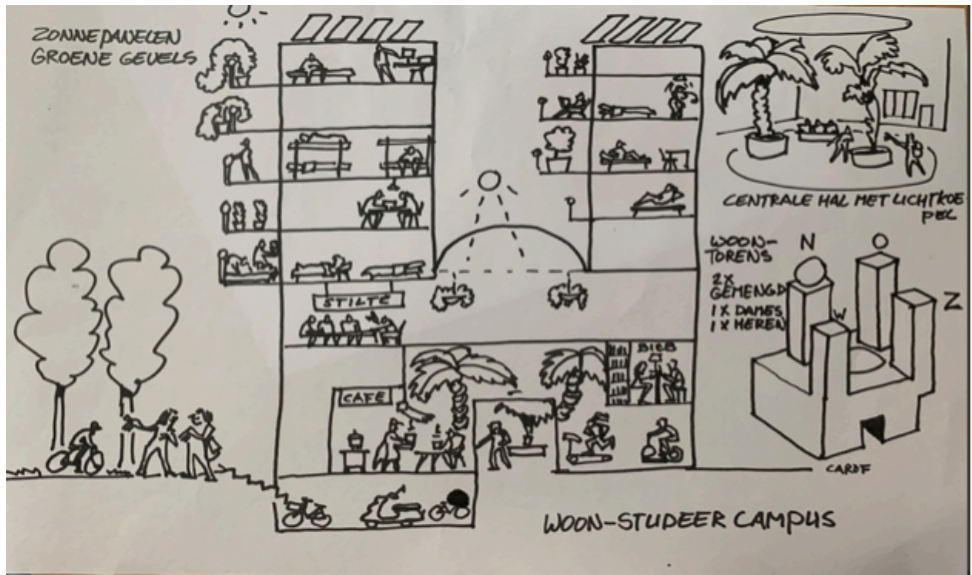 ZONNEPANELEN
GROENE GEVELS
STILTE
CAFE
BIEB
CENTRALE HAL MET LICHTKOE
PEL
WOON-
TORENS
2X
GEMENGD
1X DAMES
1X HEREN
N
O
W
Z
CARDF
WOON-STUDEER CAMPUS